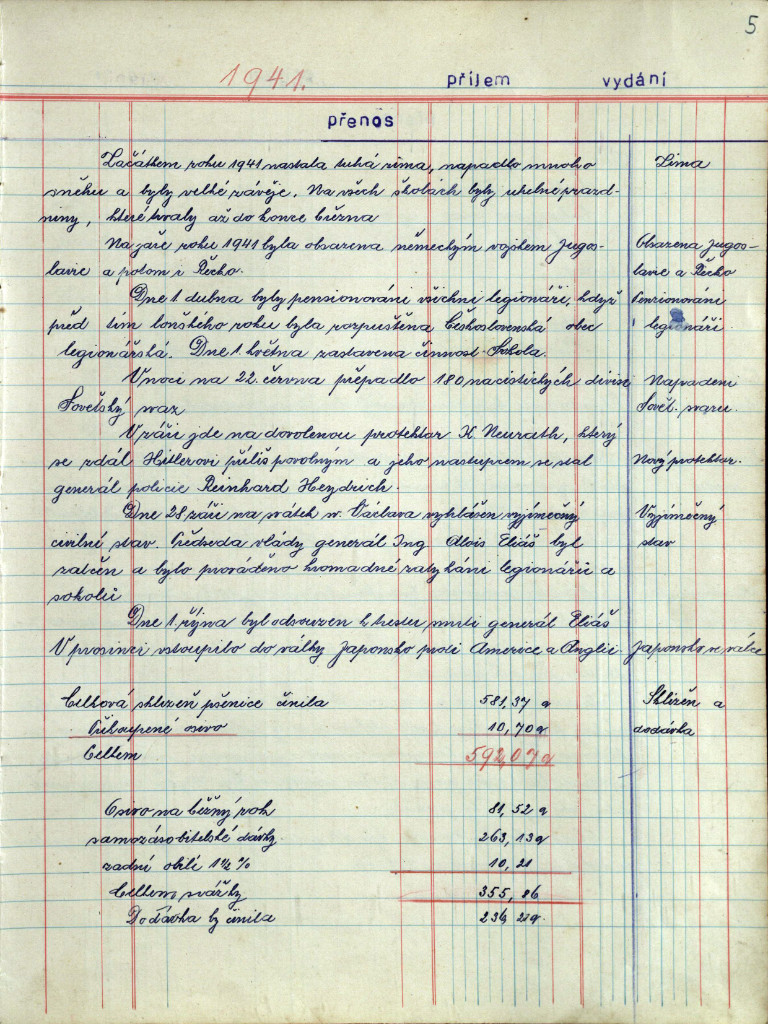 5
1941. příjem vydání
přenos
Začátkem roku 1941 nastala tuhá zima, napadlo mnoho Zima
sněhu a byly velké závěje. Na všech školách byly uhelné prázd-
niny, které trvaly až do konce března
Na jaře roku 1941 byla obsazena německým vojskem Jugos- Obsazena Jugos-
lavie a potom i Řecko. lavie a Řecko
Dne 1 dubna byly pensionováni všichni legionáři, když Penzionováni
před tím loňského roku byla rozpuštěna Československá obec legionáři.
legionářská. Dne 1. května zastavena činnost Sokola.
V noci na 22. června přepadlo 180 nacistických divisí Napadení
Sovětský svaz Sovět. svazu.
V září jde na dovolenou protektor K. Neurath, který
se zdál Hitlerovi příliš povolným a jeho nástupcem se stal Nový protektor.
generál policie Reinhard Heydrich.
Dne 28 září na svátek sv. Václava vyhlášen vyjímečný Vyjímečný
civilní stav. Předseda vlády generál Ing Alois Eliáš byl stav
zatčen a bylo prováděno hromadné zatýkání legionářů a
sokolů
Dne 1. října byl odsouzen k trestu smrti generál Eliáš
V prosinci vstoupilo do války Japonsko proti Americe a Anglii. Japonsko ve válce
Celková sklizeň pšenice činila 581,37 q Sklizeň a
Přikoupené osivo 10,70 q dodávka
Celkem 592,07 q
Osivo na běžný rok 81,52 q
samozásobitelské dávky 263,13 q
zadní obilí 1½ % 10,21
Celkem srážky 355,86
Dodávka by činila 236,21 q.